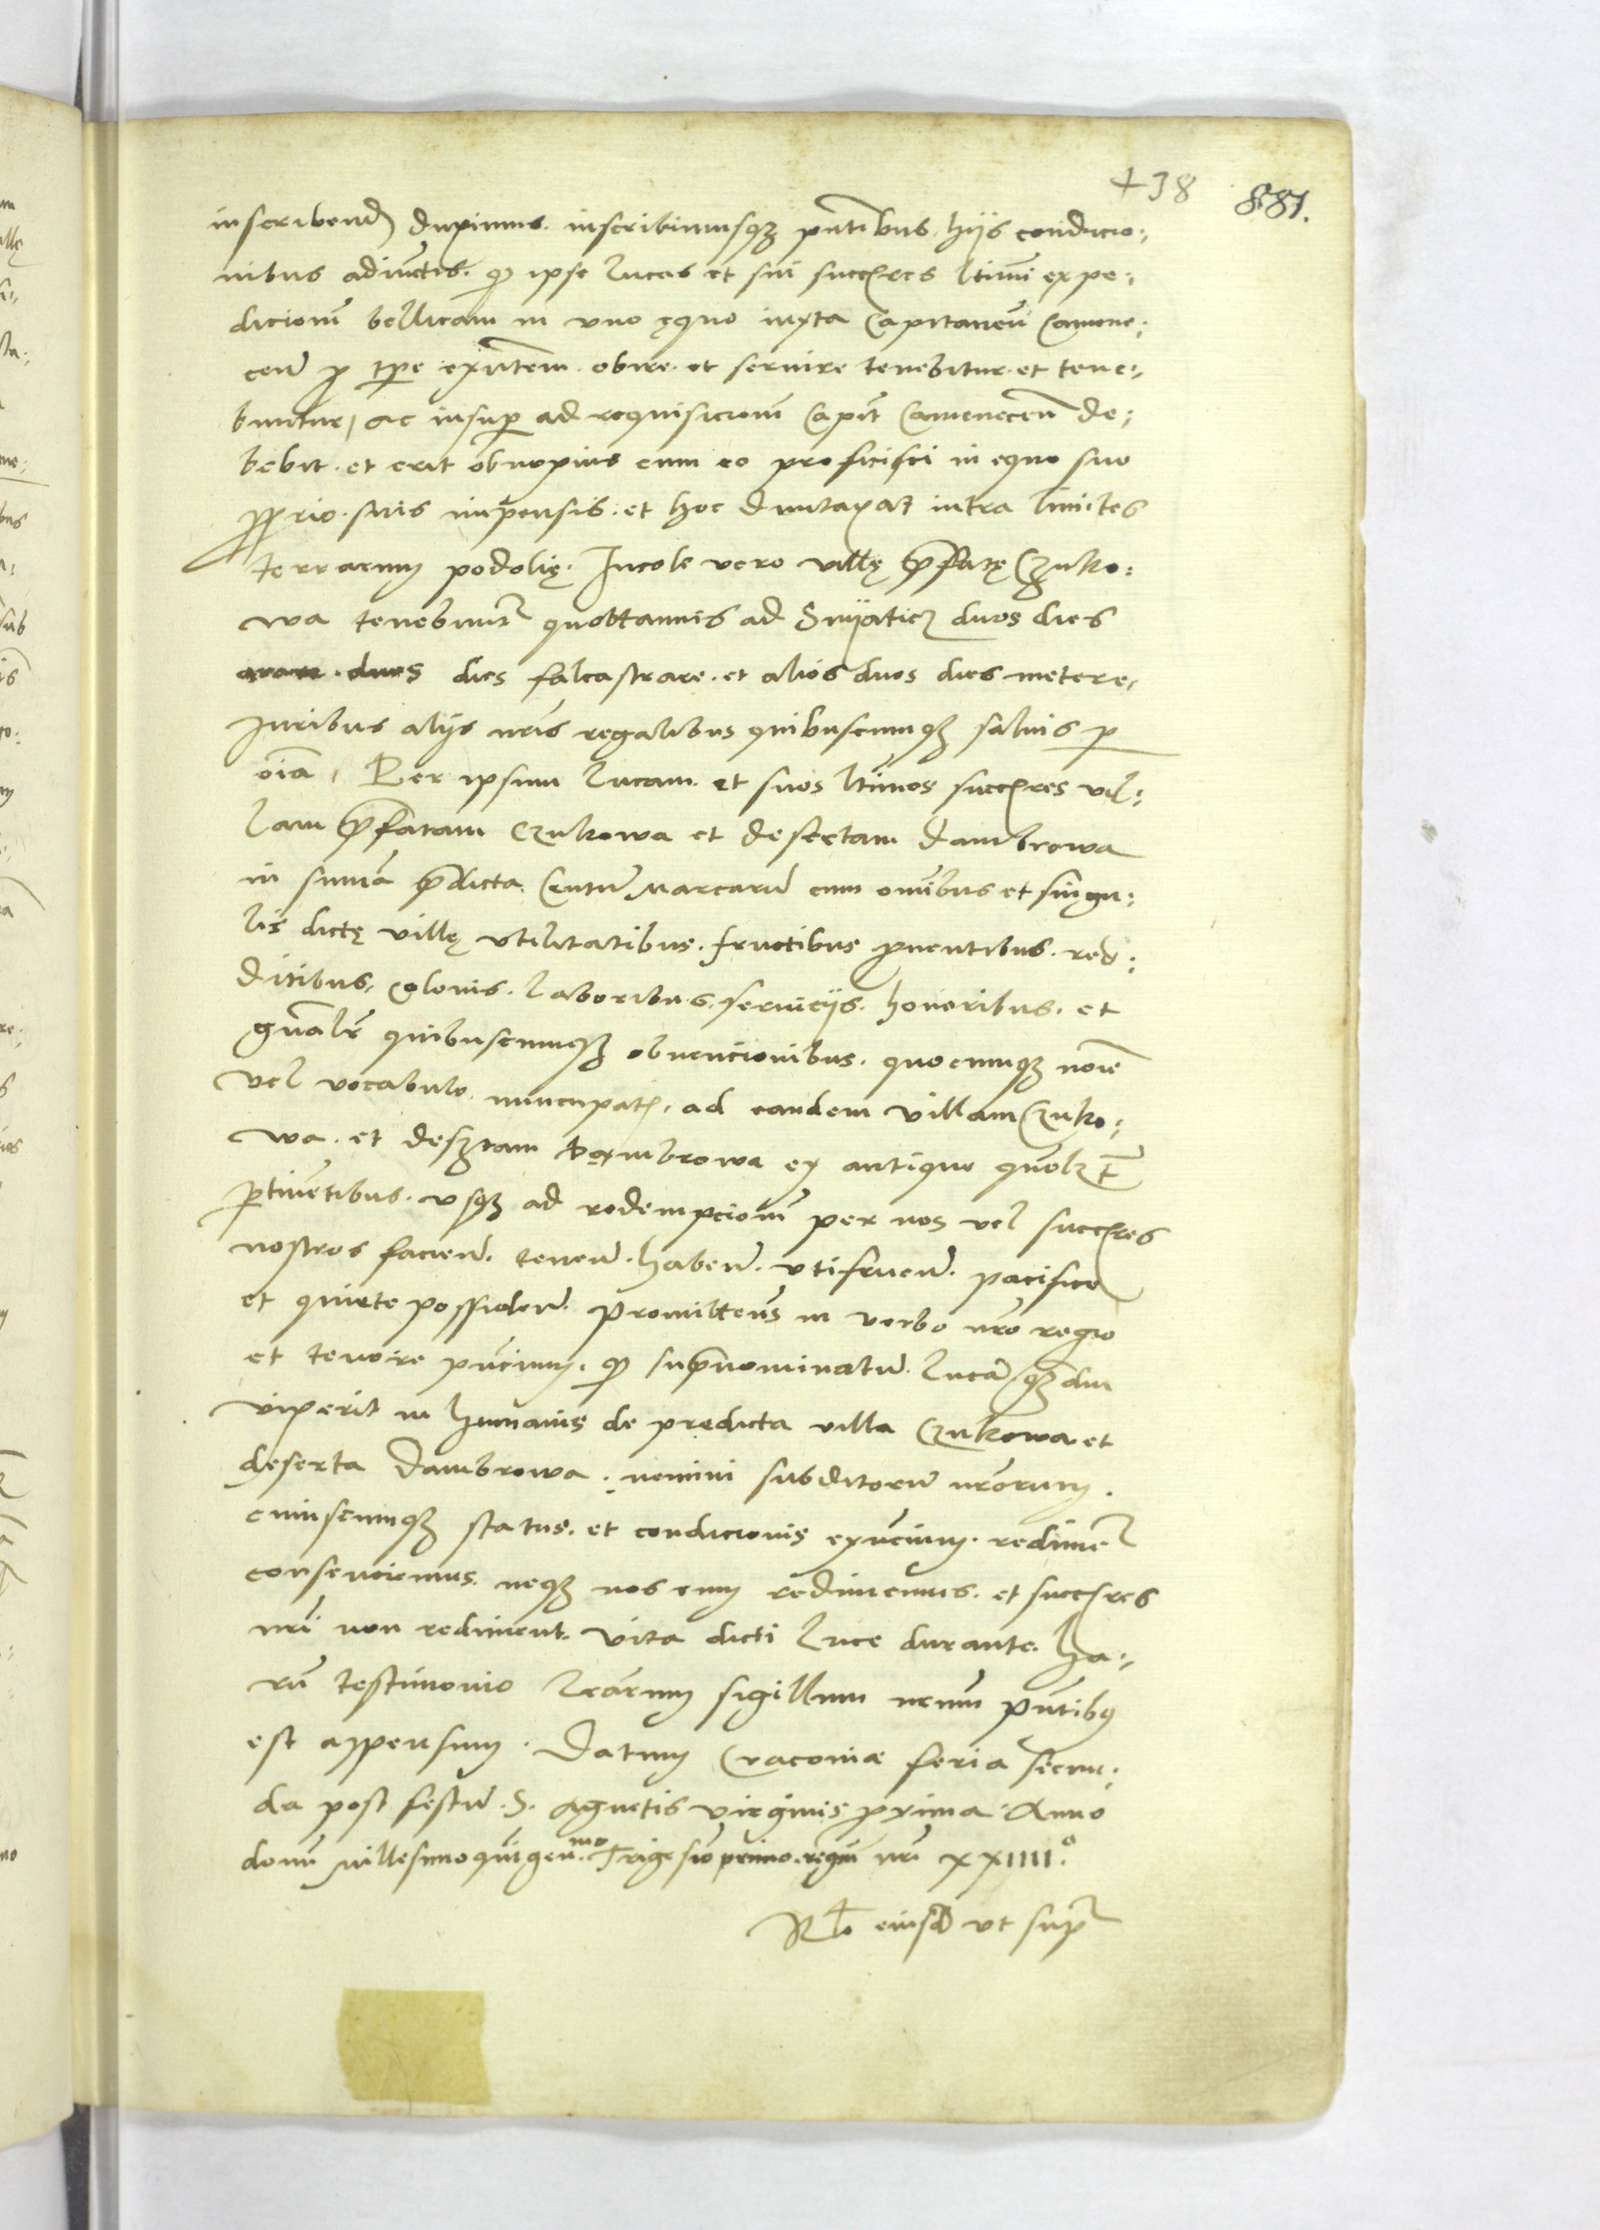 +38 881.
inscribend duximus. inscribimusq3 pntibus hijs conditio:
nibus adiunctis. q ipse lucas et sui succsres ltimi expe:
dicionem bellicam in vno equo iuxta Capitaneu Camene:
cen p tpe exntem obire. et seruire tenebitur. et tene:
buntur, ac insup ad requisicionem Capit Camenecen de:
bebit. et erit obnoxius cum eo proficisci in equo suo
pprio. suis impensis. et hoc duntaxat intra limites
terrarum podolię. Incole vero villę prefatę Czuko:
wa tenebunt quottannis ad Snyaticz duos dies
arare. duos dies falcastrare. et alios duos dies metere,
Juribus alijs nris regalibus quibuscumq3 saluis p
oia, Per ipsum lucam et suos ltimos succsres vil:
lam prefatam Czukowa et desertam Dambrowa
in suma predicta. Centu Marcaru cum omnibus et singu:
lis dictę villę vtilitatibus. fructibus prouentibus. red:
ditibus, colonis. laboribus. seruicijs. honoribus. et
gnalr quibuscumq3 obuencionibus. quocumq3 noie
vel vocabulo nuncupatis. ad eandem villam Czuko:
wa. et desertam Dambrowa ex antiquo quolzt
ptinetibus. vsq3 ad redempcionem per nos vel succsres
nostros faciend. tenend. habend. vtifruend. pacifice
et quiete possidend. Promittens in verbo nro regio
et tenore pncium. q supranominatu Luca q3diu
vixerit in humanis de predicta villa Czukowa et
deserta Dambrowa. nemini subditoru nrorum.
cuiuscumq3 status. et condicionis exncium. redimer
consenciemus. neq3 nos eum redimemus. et succsres
nri non rediment. vita dicti Luce durante. Ha:
ru testimonio lrarum sigillum nrum pntibus
est appensum. Datum Cracoviæ feria secun:
da post festu S. Agnetis virginis proxima Anno
domi millesimo quigen.mo Trigesio primo. regni nri XXIIII.o
Rlo eiusd vt supr